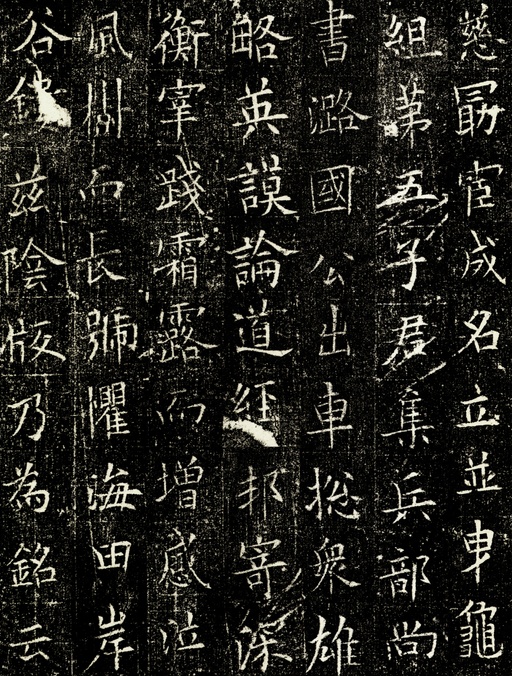 慈勗宦成名立並申龜
組第五子君集兵部尚
書潞國公出車揔衆雄
略英謨論道經邦寄深
衡宰踐霜露而增感泣
風樹而長號懼海田岸
谷鐫兹陰版乃為銘云